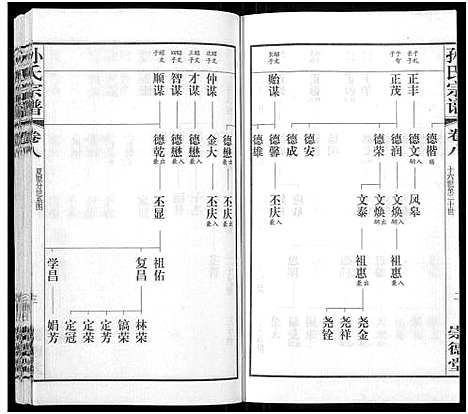 孙氏宗谱
卷八
十六世至二十世
崇德堂
正丰
正茂
贻谋
德楷
德文
德润
德荣
德安
德成
德馨
德雄
凤皋
文焕
文焕
文泰
丕庆
祖惠
祖惠
尧金
尧祥
尧铨
孙氏宗谱
卷八
仲谋
才谋
智谋
顺谋
德懋
金大
德懋
德懋
德乾
丕庆
丕庆
丕显
祖佑
复昌
学昌
林荣
镐荣
定荣
定冠
娟芳